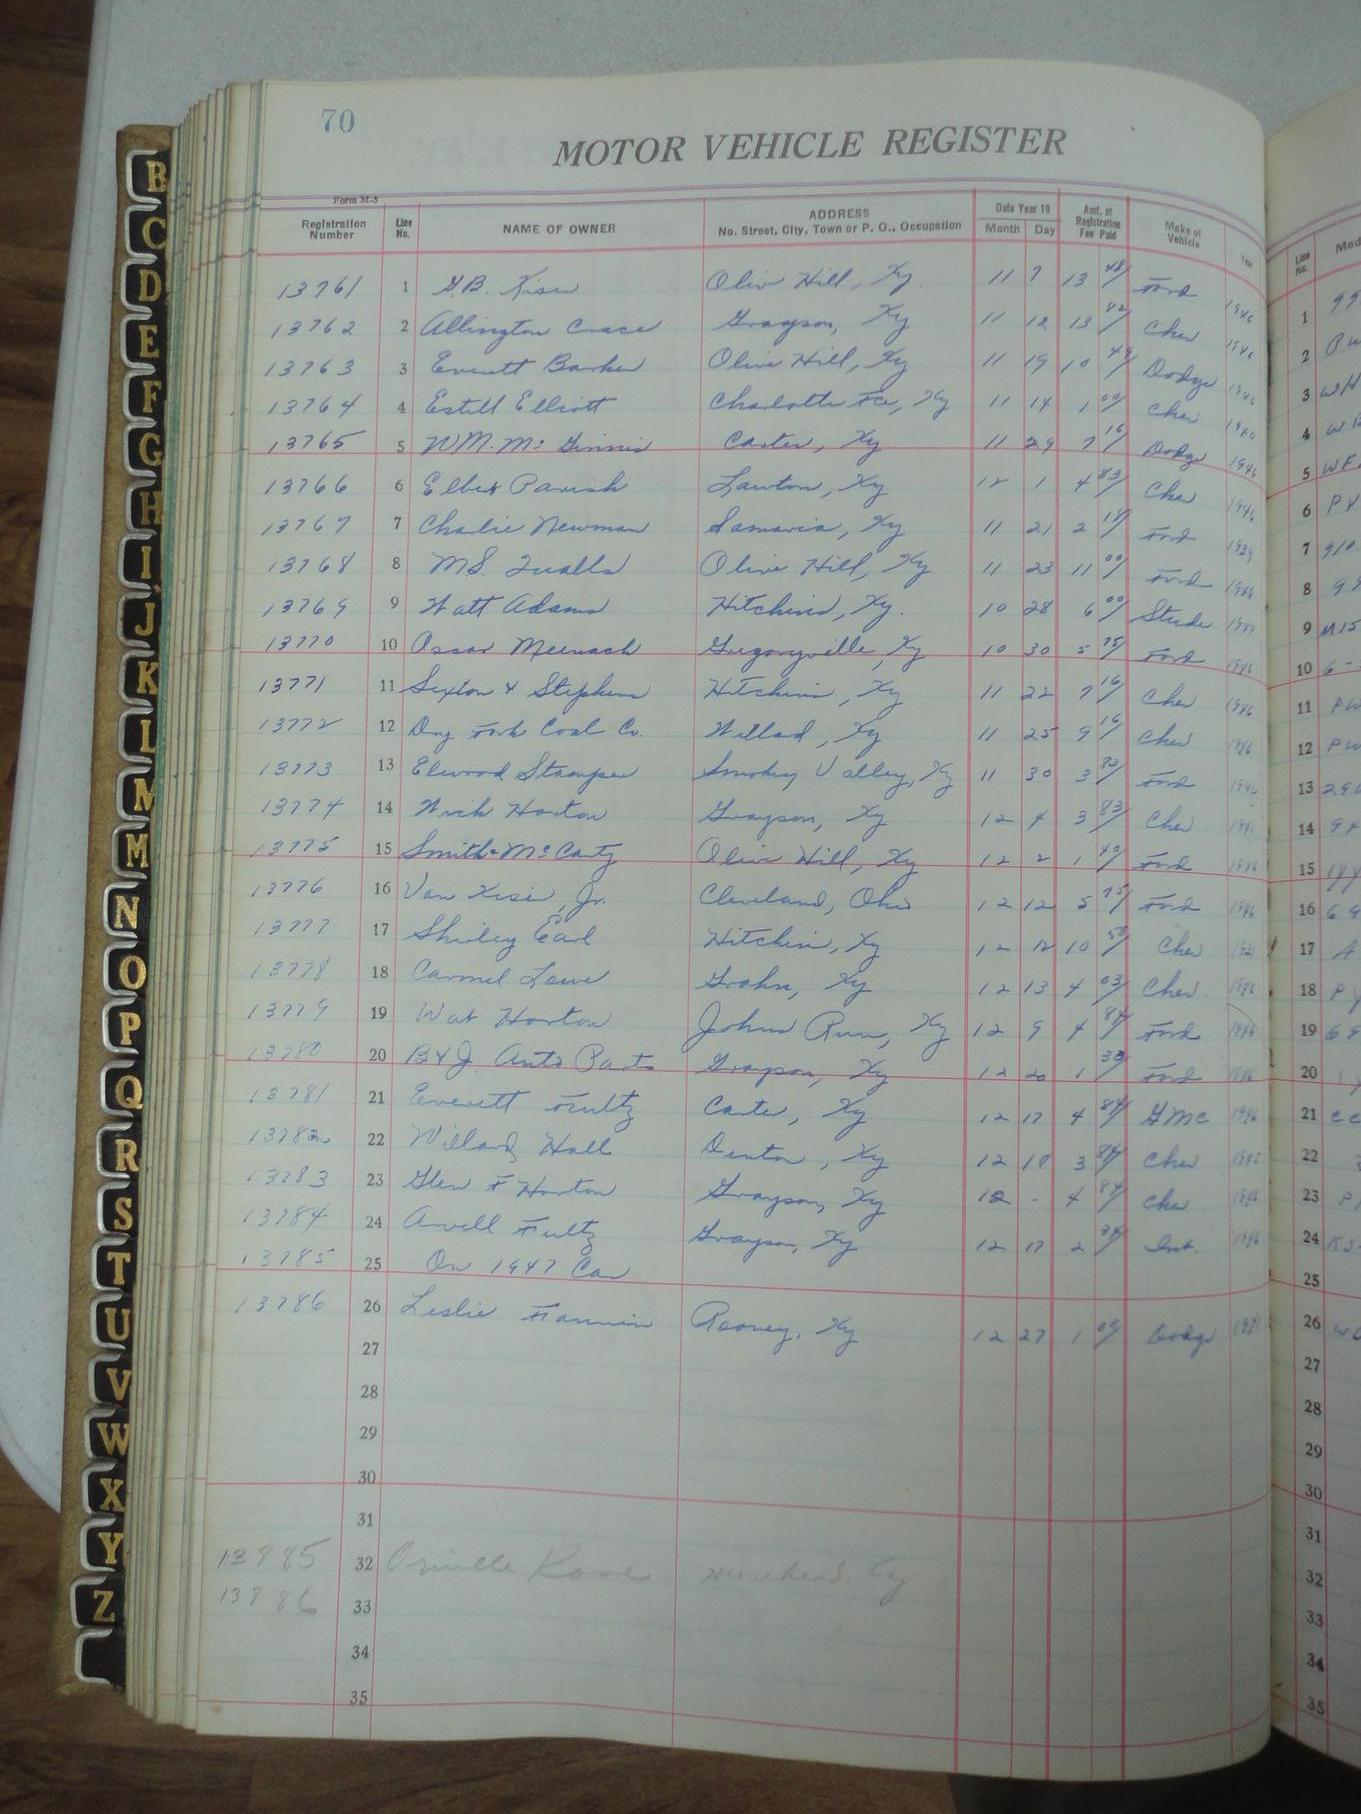 70
MOTOR VEHICLE REGISTER
Form M-3
Registration Number Line No. NAME OF OWNER ADDRESS No. Street, City, Town or P. O., Occupation Date Year 19 Month Day Amt. of Registration Fee Paid Make of Vehicle Year Line No.
13761 1 G.B. Kiser Olive Hill, Ky. 11 7 13 48 Ford 1946 1
13762 2 Allington Crace Grayson, Ky 11 12 13 42 Chev 1946 2
13763 3 Everett Barker Olive Hill, Ky 11 19 10 49 Dodge 1946 3
13764 4 Estill Elliott Charlotte Fce, Ky 11 14 1 00 Chev 1940 4
13765 5 WM. Mc Ginnis Carter, Ky 11 29 7 16 Dodge 1946 5
13766 6 Elbert Parish Lawton, Ky 12 1 4 83 Chev 1946 6
13767 7 Charlie Newman Samaria, Ky 11 21 2 18 Ford 1939 7
13768 8 M.S. Qualls Olive Hill, Ky 11 23 11 00 Ford 1946 8
13769 9 Watt Adams Hitchins, Ky. 10 28 6 00 Stude 1947 9
13770 10 Oscar Meenach Gregoryville, Ky 10 30 5 75 Ford 1946 10
13771 11 Sexton & Stephens Hitchins, Ky 11 22 7 16 Chev 1946 11
13772 12 Dry Fork Coal Co. Willard, Ky 11 25 9 16 Chev 1946 12
13773 13 Elwood Stamper Smokey Valley, Ky 11 30 3 83 Ford 1946 13
13774 14 Wick Horton Grayson, Ky 12 4 3 83 Chev 1941 14
13775 15 Smith & McCarty Olive Hill, Ky 12 2 1 40 Ford 1946 15
13776 16 Van Kiser, Jr. Cleveland, Ohio 12 12 5 75 Ford 1946 16
13777 17 Shirley Earl Hitchins, Ky 12 12 10 50 Chev 17
13778 18 Carmel Lowe Grahn, Ky 12 13 4 03 Chev. 1946 18
13779 19 Wat Horton Johns Run, Ky 12 9 4 84 Ford 1946 19
13780 20 B & J. Auto Parts Grayson, Ky 12 20 1 33 Ford 1946 20
13781 21 Everett Fultz Carter, Ky 12 17 4 84 GMC 1946 21
13782 22 Willard Hall Denton, Ky 12 18 3 84 Chev 22
13783 23 Glen F Horton Grayson, Ky 12 - 4 84 Chev 1946 23
13784 24 Arvell Fultz Grayson, Ky 12 17 2 34 Int. 1946 24
13785 25 On 1947 Car 25
13786 26 Leslie Fannin Rooney, Ky 12 27 1 00 Dodge 26
27 27
28 28
29 29
30 30
31 31
13985 32 Orville Rose Morehead, Ky 32
13986 33 33
34 34
35 35
B
C
D
E
F
G
H
I
J
K
L
M
M
N
O
P
Q
R
S
T
U
V
W
X
Y
Z